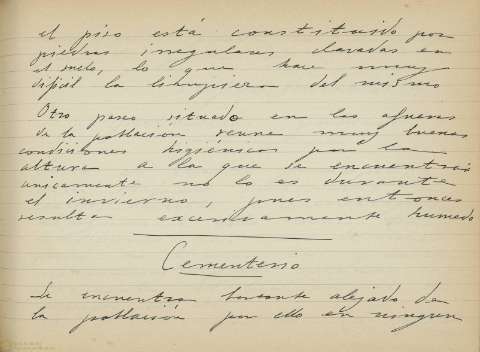 el piso está constituido por
piedras irregulares clavadas en
el suelo, lo que hace muy
dificil la limpieza del mismo
Otro paseo situado en las afueras
de la población reune muy buenas
condiciones higiénicas por la
altura a la que se encuentra
unicamente no lo es durante
el invierno, pues entonces
resulta excesivamente humedo
Cementerio
Se encuentra bastante alejado de
la población por ello en ningun